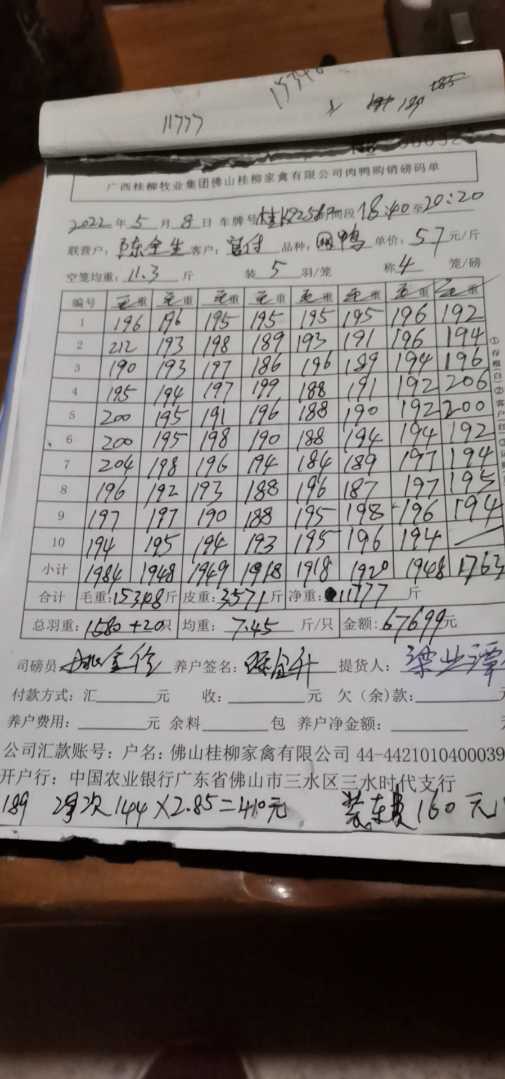 11777
广西桂柳牧业集团佛山桂柳家禽有限公司肉鸭购销磅码单
2022年5月8日 车牌号 时段18:40至20:20
联营户: 客户: 品种: 鸭 单价: 5.7元/斤
空笼均重: 11.3斤 装5羽/笼 称4笼/磅
编号 毛重 毛重 毛重 毛重 毛重 毛重 毛重 毛重
1 196 196 195 195 195 195 196 192
2 212 193 198 189 193 191 196 194
3 190 193 197 186 196 189 194 196
4 195 194 197 199 188 191 192 206
5 200 195 191 196 188 190 192 200
6 200 195 198 190 188 194 194 192
7 204 198 196 194 184 189 197 194
8 196 192 193 188 196 187 197 195
9 197 197 190 188 195 198 196 194
10 194 195 194 193 195 196 194
小计 1984 1948 1949 1918 1918 1920 1948 1763
合计 毛重:15348斤 皮重:3571斤 净重:11777斤
总羽重:1580+20只 均重:7.45斤/只 金额:67699元
司磅员 养户签名: 提货人:
付款方式:汇 元 收: 元 欠(余)款:
养户费用: 元 余料 包 养户净金额:
公司汇款账号:户名:佛山桂柳家禽有限公司 44-4421010400039
开户行:中国农业银行广东省佛山市三水区三水时代支行
189 次144×2.85=410元 装车费160元